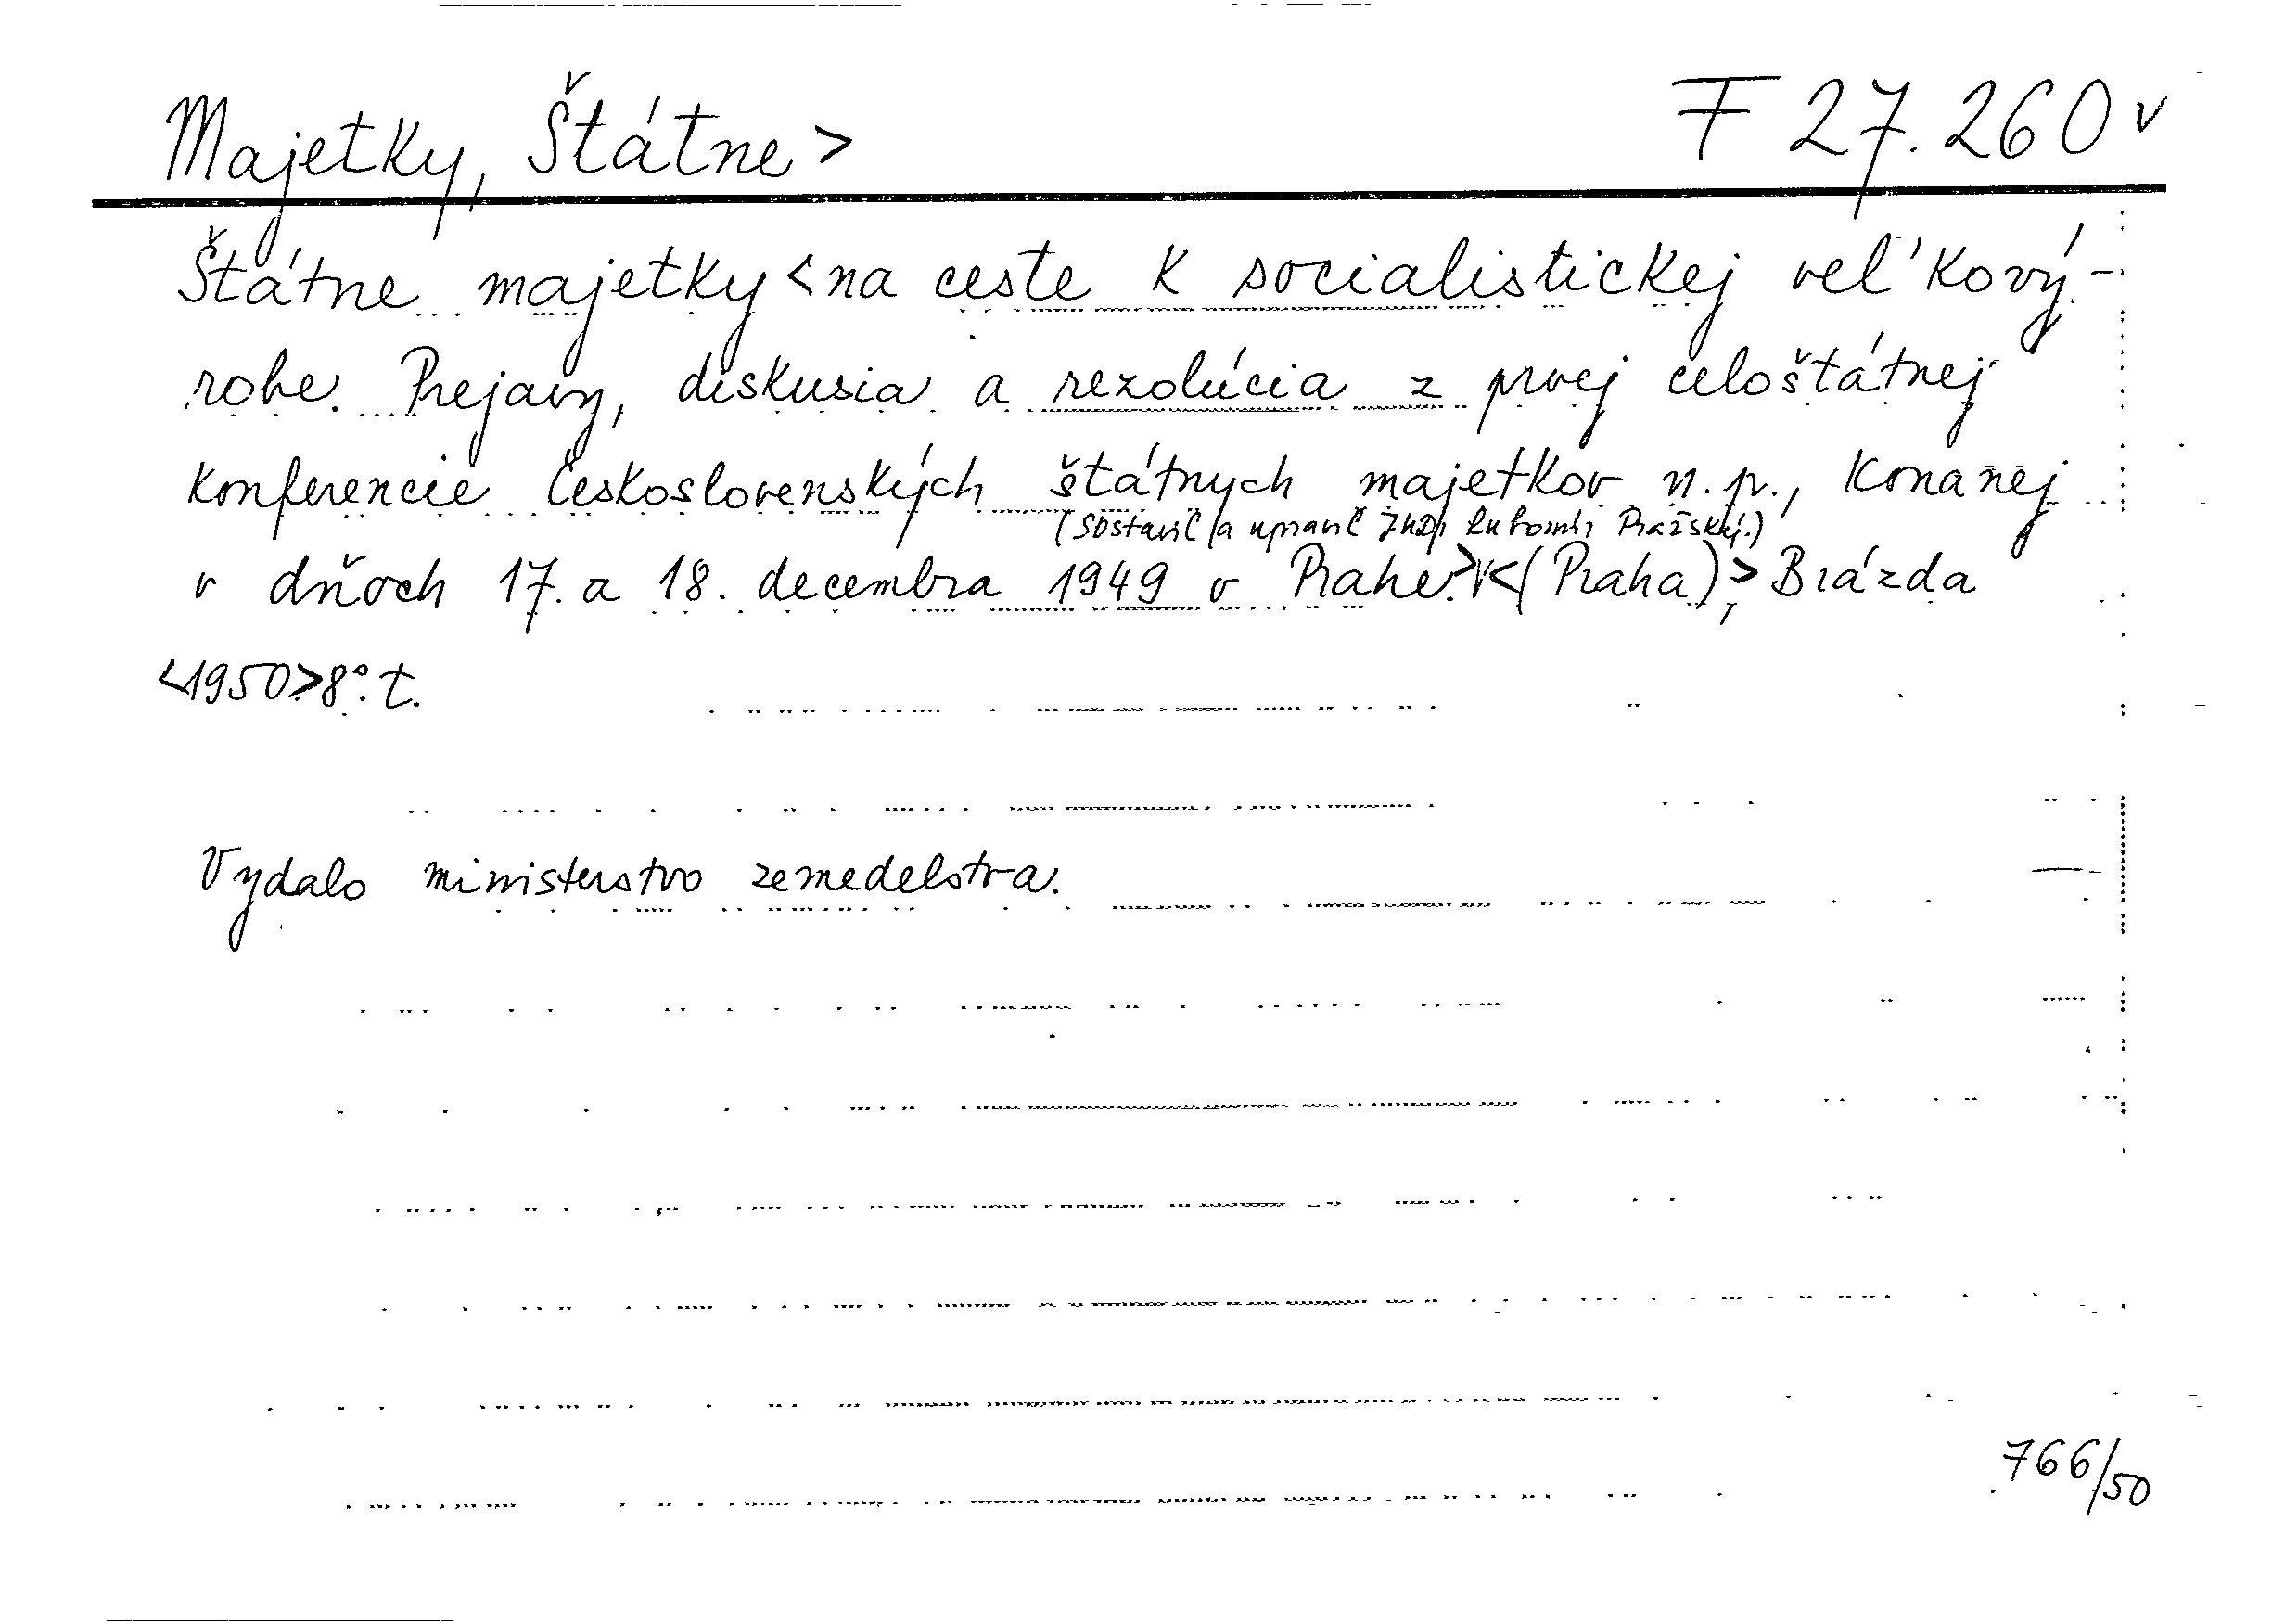 Majetky, Štátne>
F 27.260 v
Štátne majetky <na ceste k socialistickej veľkový-
robe. Prejavy, diskusia a rezolúcia z prvej celoštátnej
konferencie Československých štátnych majetkov n.p., konanej
(Sostavil a upravil JUDr Ľubomír Pražský.)
v dňoch 17. a 18. decembra 1949 v Prahe.> V<(Praha),> Brázda
<1950> 8°. t.
Vydalo ministerstvo zemedelstva.
766/50